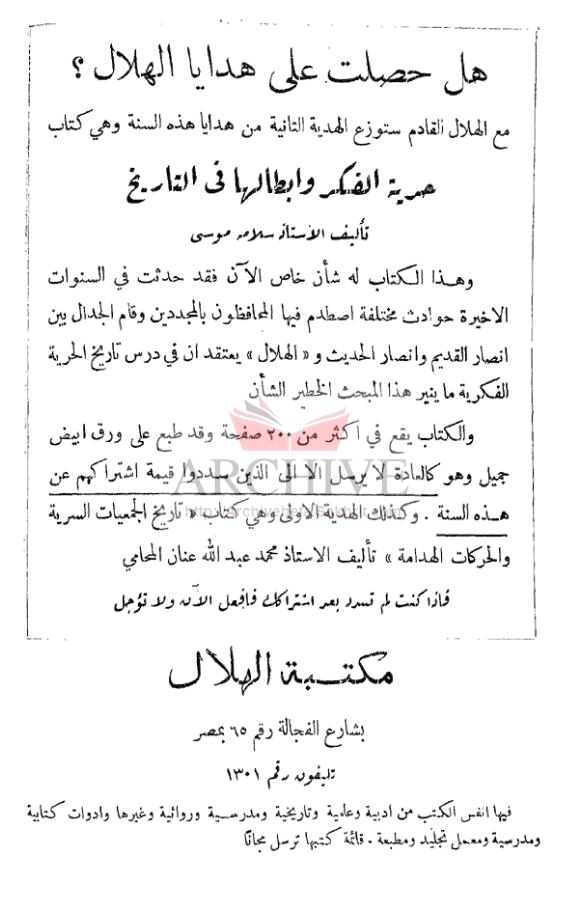 هل حصلت على هدايا الهلال ؟
مع الهلال القادم ستوزع الهدية الثانية من هدايا هذه السنة وهي كتاب
حرية الفكر وابطالها فى التاريخ
تأليف الاستاذ سلامه موسى
وهـذا الـكتاب له شأن خاص الآن فقد حدثت في السنوات
الاخيرة حوادث مختلفة اصطدم فيها المحافظون بالمجددين وقام الجدال بين
انصار القديم وانصار الحديث و « الهلال » يعتقد ان في درس تاريخ الحرية
الفكرية ما ينير هذا المبحث الخطير الشأن
والكتاب يقع في اكثر من ٢٠٠ صفحة وقد طبع على ورق ابيض
جميل وهو كالعادة لا يرسل الا الى الذين سددوا قيمة اشتراكهم عن
هذه السنة . وكذلك الهدية الاولى وهي كتاب « تاريخ الجمعيات السرية
والحركات الهدامة » تأليف الاستاذ محمد عبد الله عنان المحامي
فاذا كنت لم تسدد بعد اشتراكك فافعل الآن ولا تؤجل
مكتبة الهلال
بشارع الفجالة رقم ٦٥ بمصر
تليفون رقم ١٣٠١
فيها انفس الكتب من ادبية وعلمية وتاريخية ومدرسية وروائية وغيرها وادوات كتابية
ومدرسية ومعمل تجليد ومطبعة . قائمة كتبها ترسل مجانًا
ARCHIVE